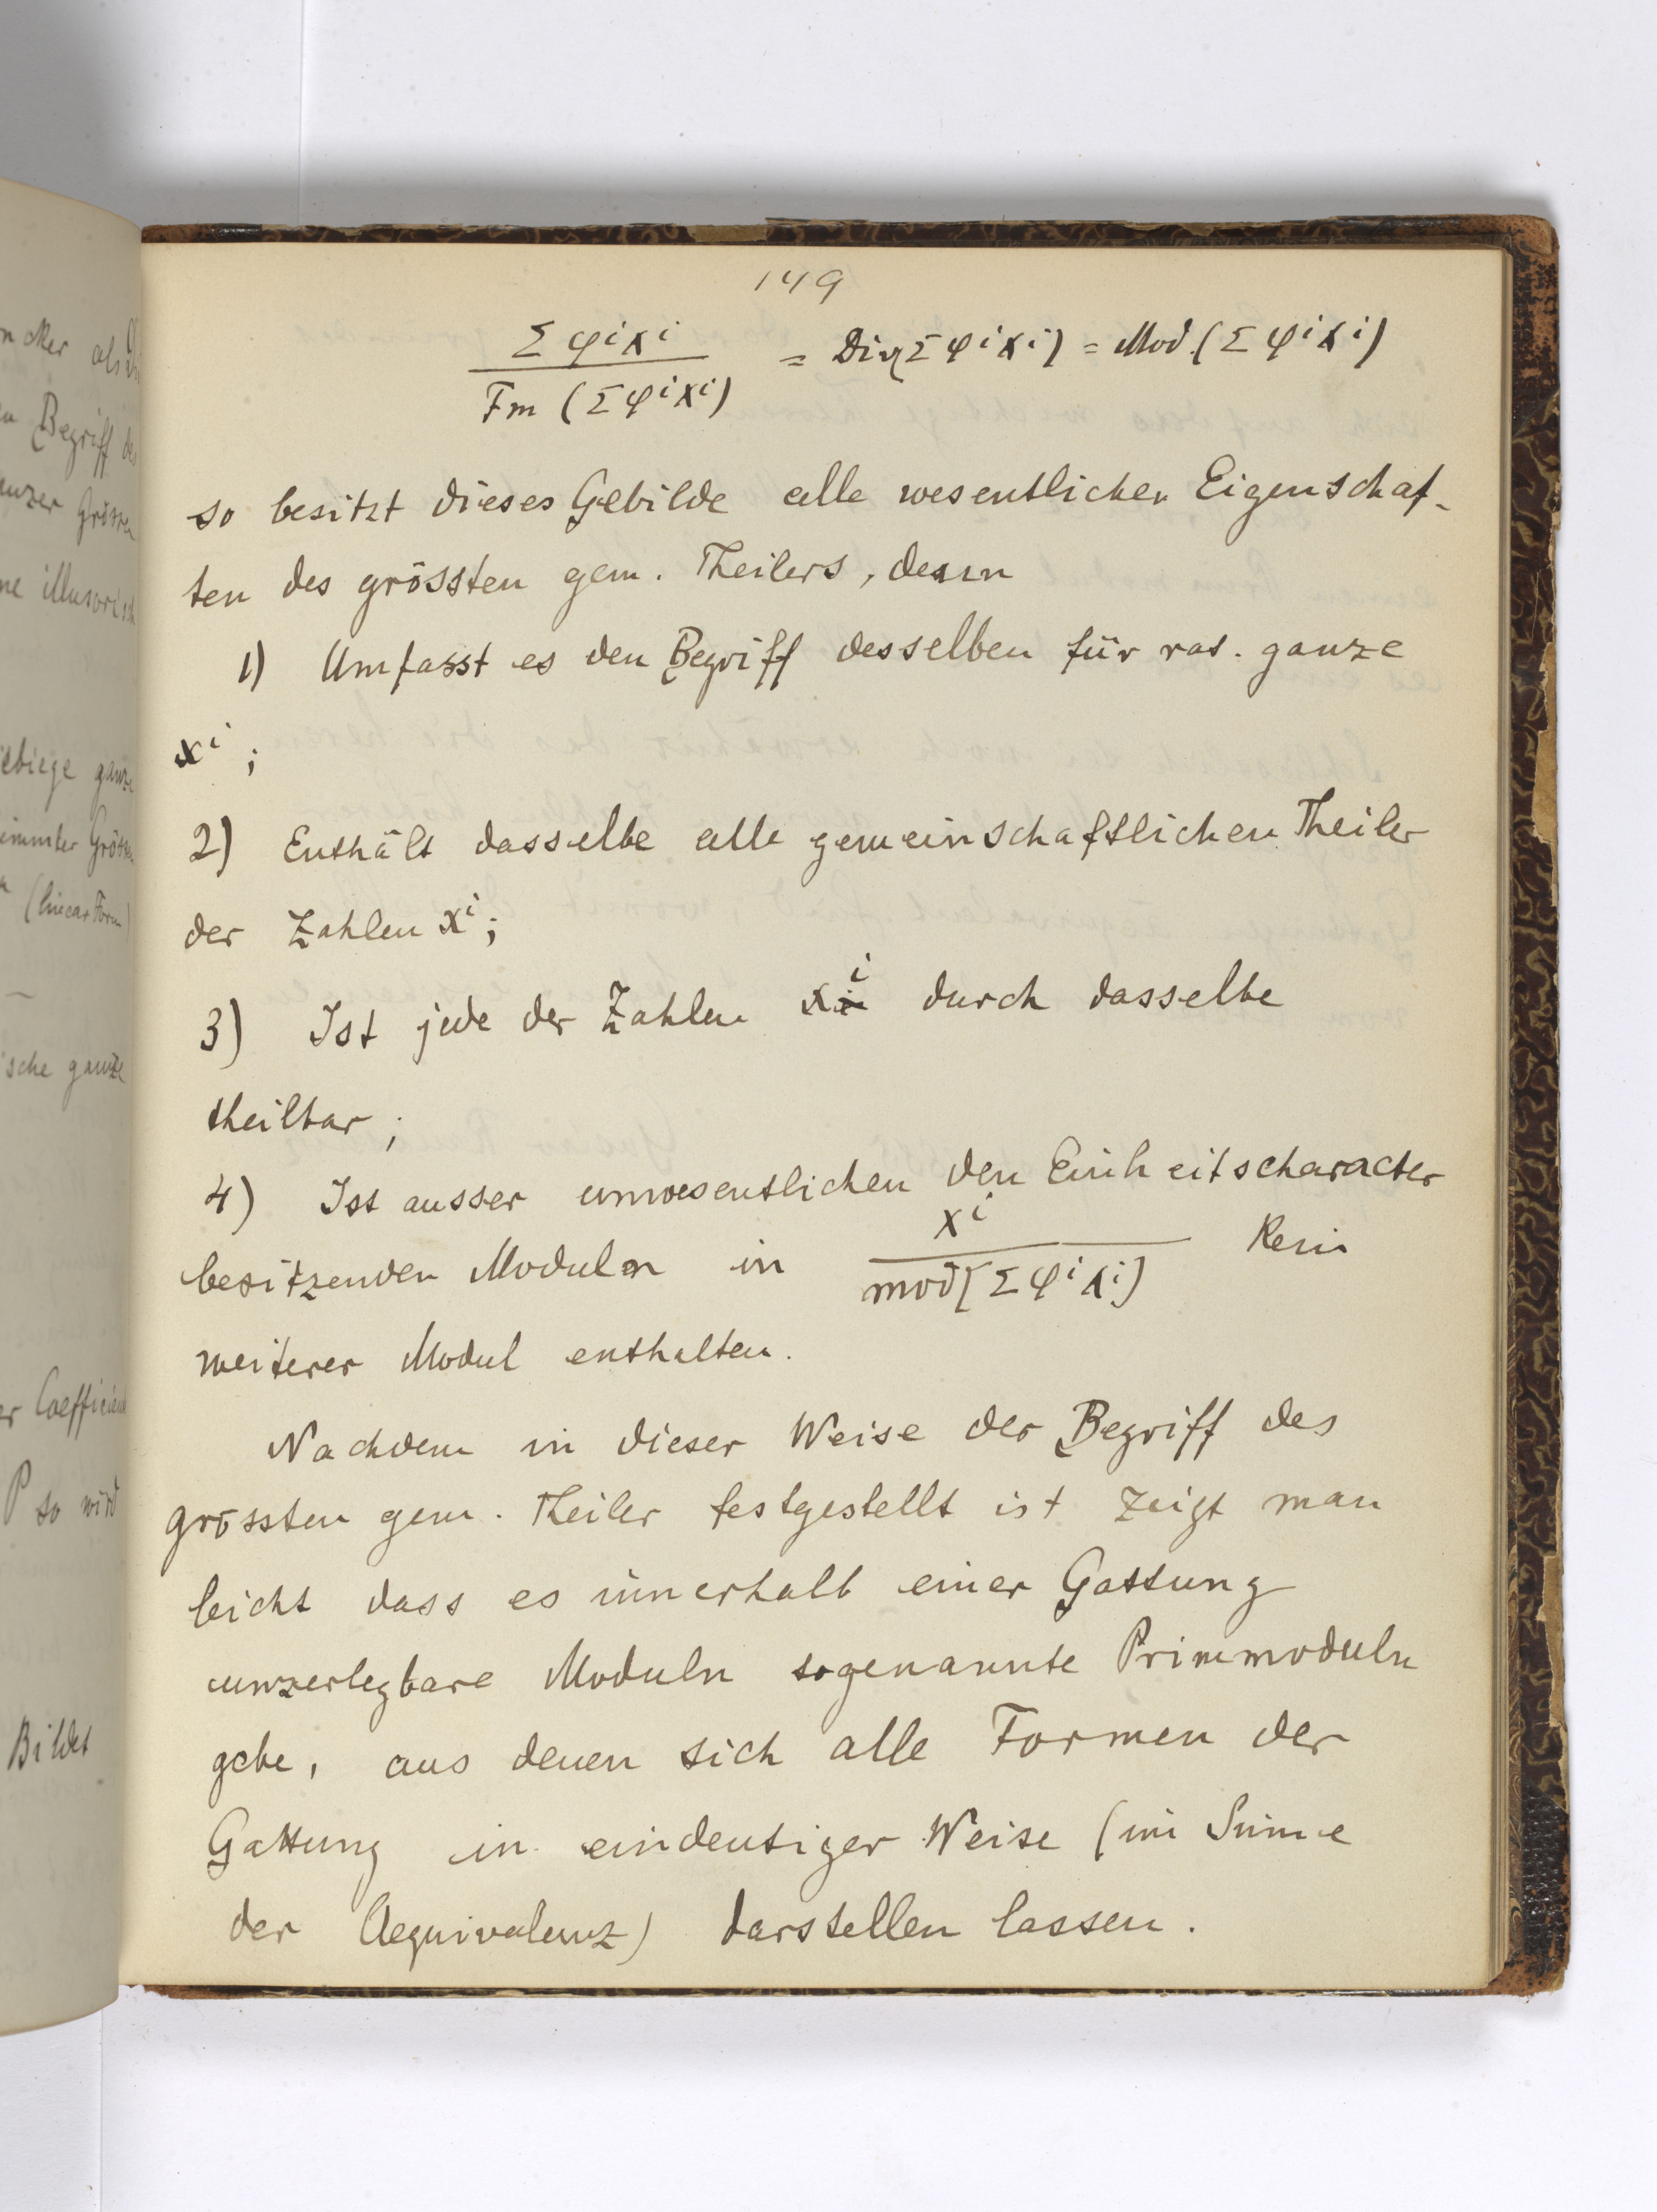 149
Σ φ^i x^i / Fm (Σ φ^i x^i) = Div(Σ φ^i x^i) = Mod. (Σ φ^i x^i)
so besitzt dieses Gebilde alle wesentlichen Eigenschaf-
ten des grössten gem. Theilers, denn
1) Umfasst es den Begriff desselben für rat. ganze
x^i ;
2) Enthält dasselbe alle gemeinschaftlichen Theiler
der Zahlen x^i ;
3) Ist jede der Zahlen x^i durch dasselbe
theilbar ;
4) Ist ausser unwesentlichen den Einheitscharacter
besitzenden Moduln in x^i / mod(Σ φ^i x^i) kein
weiterer Modul enthalten.
Nachdem in dieser Weise der Begriff des
grössten gem. Theiler festgestellt ist zeigt man
leicht dass es innerhalb einer Gattung
unzerlegbare Moduln sogenannte Primmoduln
gebe, aus denen sich alle Formen der
Gattung in eindeutiger Weise (im Sinne
der Aequivalenz) darstellen lassen.
als
Begriff des
ganzer Grössen
illusorisch
ganze
Grössen
(linear Form)
ganze
Coefficient
P so wird
Bildet